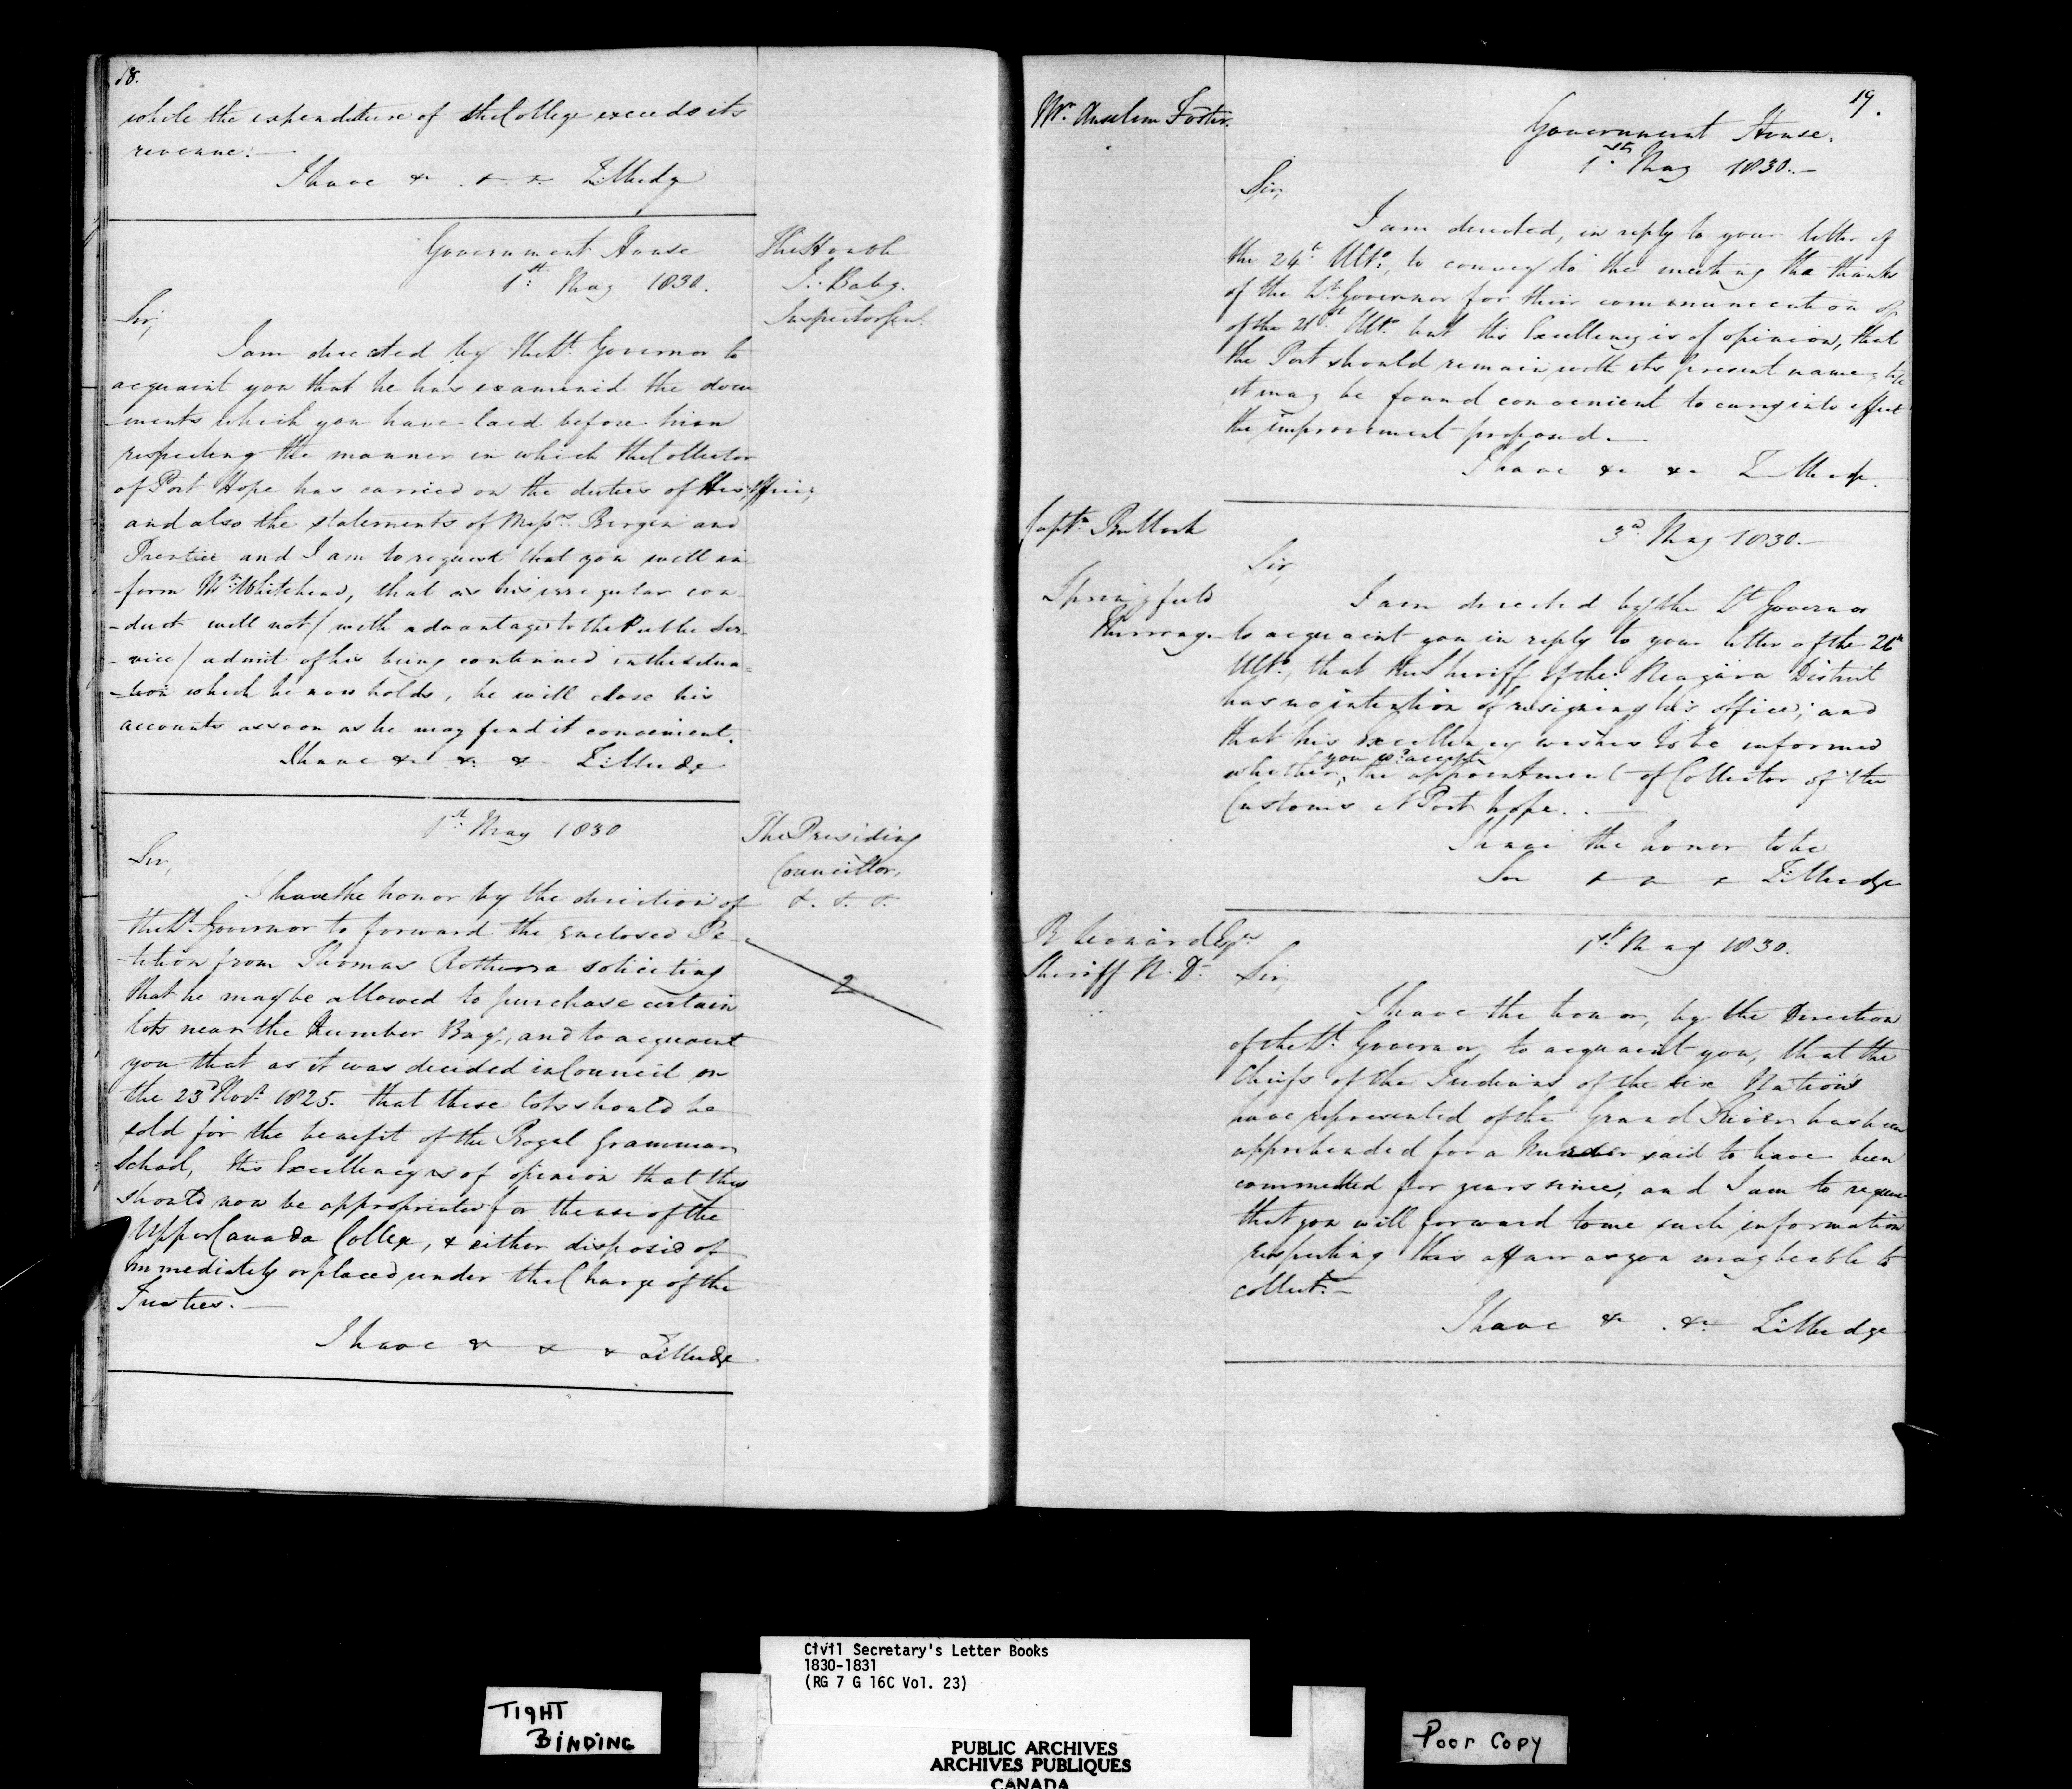 18.
while the expenditure of the College exceeds its
revenue.—
I have &c. &c. &c. Z. Mudge
Government House
1st May 1830.
The Honble
J. Baby.
Inspector Genl.
Sir,
I am directed by the Lt. Governor to
acquaint you that he has examined the docu
-ments which you have laid before him
respecting the manner in which the Collector
of Port Hope has carried on the duties of His office;
and also the statements of Messrs. Bergin and
Prentice and I am to request that you will in
-form Mr. Whitehead, that as his irregular con-
-duct will not / with advantage to the Public Ser-
-vice / admit of his being continued in the situa-
-tion which he now holds, he will close his
accounts as soon as he may find it convenient.
I have &c. &c. &c. Z. Mudge
1st May 1830
The Presiding
Councillor,
&. &. &.
Sir,
I have the honor by the direction of
the Lt. Governor to forward the enclosed Pe-
-tition from Thomas soliciting
that he may be allowed to purchase certain
lots near the Humber Bay, and to acquaint
you that as it was decided in Council on
the 23d Novr. 1825. that these lots should be
sold for the benefit of the Royal Grammar
School, His Excellency is of opinion that they
should now be appropriated for the use of the
Upper Canada College, & either disposed of
immediately or placed under the Charge of the
Trustees.—
I have & & & Z. Mudge
2
19.
Mr. Anselm Foster.
Government House.
1st May 1830.—
Sir,
I am directed, in reply to your letter of
the 24th Ulto., to convey to the meeting the thanks
of the Lt. Governor for their communication of
of the 21st Ulto. but His Excellency is of opinion, that
the Port should remain with its present name,
it may be found convenient to carry into effect
the improvement proposed.—
I have &c. &c. Z Mudge.
Captn. Bullock
Springfield
3d. May 1830.—
Sir,
I am directed by the Lt Governor
to acquaint you in reply to your letter of the
Ulto., that the Sheriff of the Niagara District
has no intention of resigning his office; and
that his Excellency wishes to be informed
whether you wd. accept the appointment of Collector of the
Customs at Port hope..—
I have the honor to be
Sir & & & Z. Mudge
R Leonard Esqr
Sheriff N. D.
1st. May 1830.
Sir,
I have the honor, by the Direction
of the Lt. Governor to acquaint you, that the
Chiefs of the Indians of the six Nations
have represented of the Grand River has been
apprehended for a Murder said to have been
committed for years since, and I am to request
that you will forward to me such information
respecting this affair as you may be able to
collect.—
I have &c. &c. Z. Mudge
TIGHT
BINDING
Civil Secretary's Letter Books
1830-1831
(RG 7 G 16C Vol. 23)
PUBLIC ARCHIVES
ARCHIVES PUBLIQUES
CANADA
Poor Copy